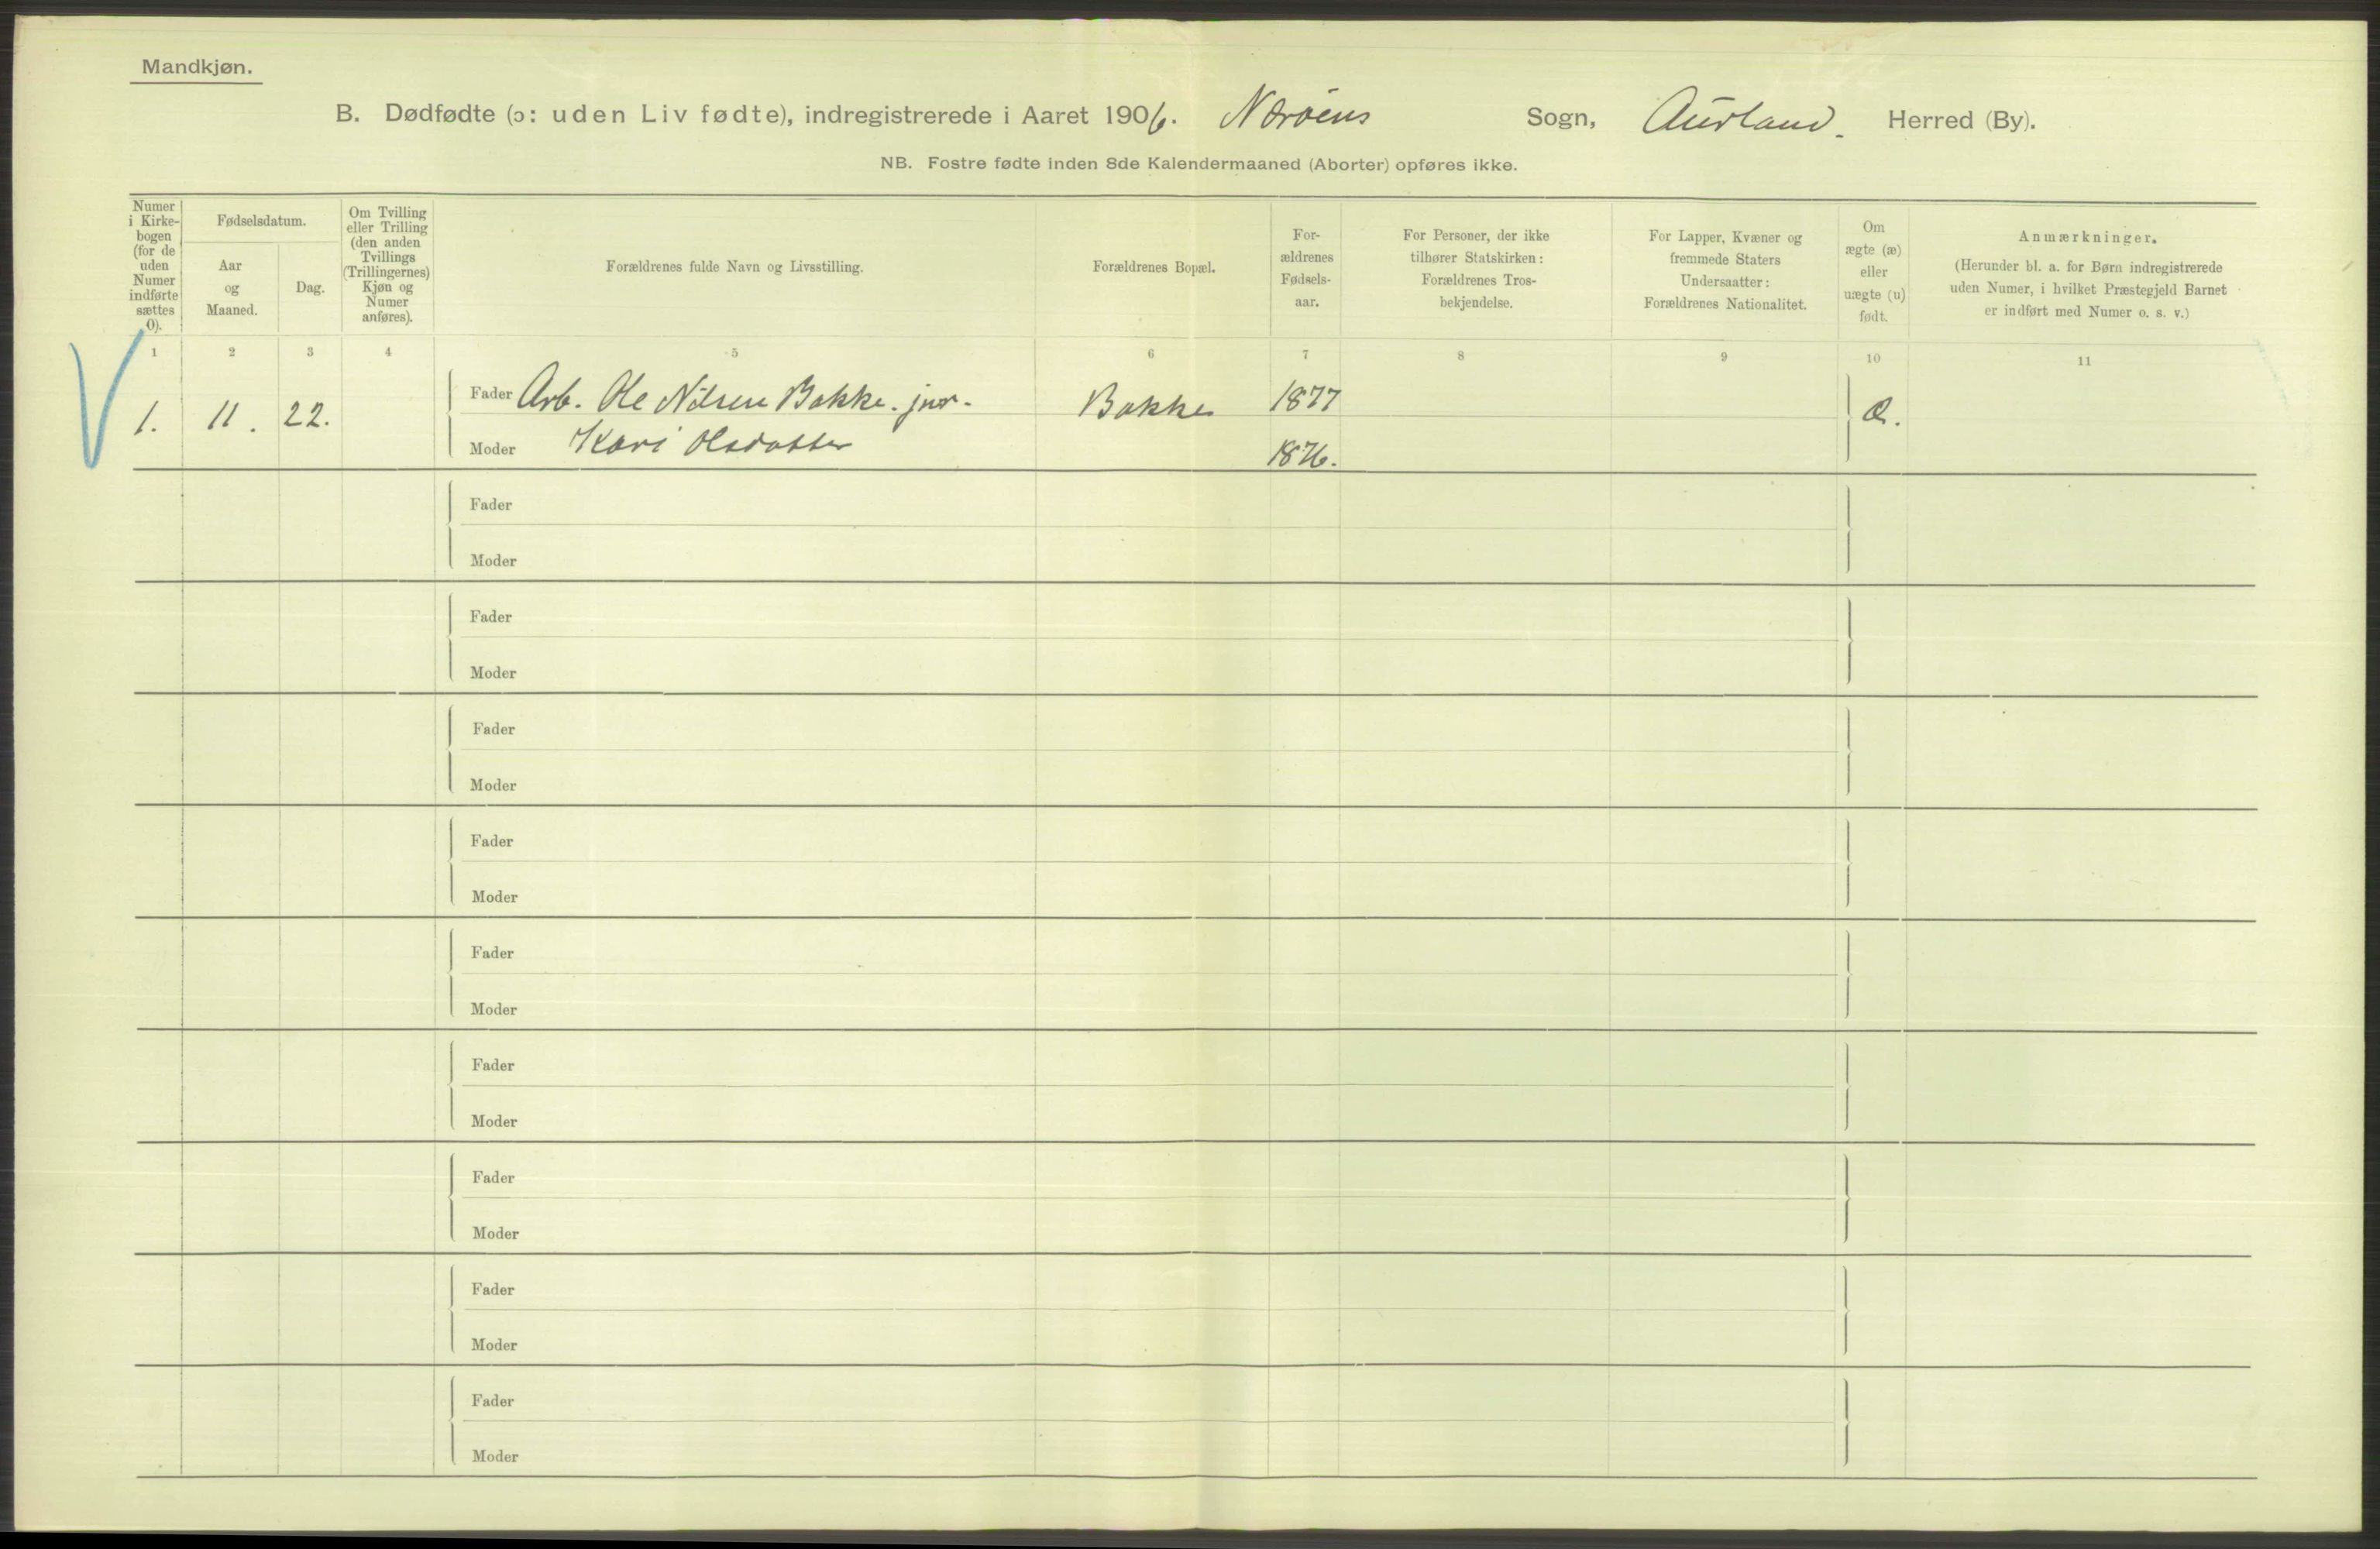 Mandkjøn.
B. Dødfødte (ɔ: uden Liv fødte), indregistrerede i Aaret 1906. Nærøens Sogn, Aurland. Herred (By).
NB. Fostre fødte inden 8de Kalendermaaned (Aborter) opføres ikke.
Numer
i Kirke-
bogen
(for de
uden
Numer
indførte
sættes
0).
Fødselsdatum.
Aar
og
Maaned.
Dag.
Om Tvilling
eller Trilling
(den anden
Tvillings
(Trillingernes)
Kjøn og
Numer
anføres).
Forældrenes fulde Navn og Livsstilling.
Forældrenes Bopæl.
For-
ældrenes
Fødsels-
aar.
For Personer, der ikke
tilhører Statskirken:
Forældrenes Tros-
bekjendelse.
For Lapper, Kvæner og
fremmede Staters
Undersaatter:
Forældrenes Nationalitet.
Om
ægte (æ)
eller
uægte (u)
født.
Anmærkninger.
(Herunder bl. a. for Børn indregistrerede
uden Numer, i hvilket Præstegjeld Barnet
er indført med Numer o. s. v.)
1 2 3 4 5 6 7 8 9 10 11
1. 11. 22. Fader Arb. Ole Nilsen Bakke. jnr. Bakke 1877 Æ.
Moder Kari Olsdatter 1876.
Fader
Moder
Fader
Moder
Fader
Moder
Fader
Moder
Fader
Moder
Fader
Moder
Fader
Moder
Fader
Moder
Fader
Moder